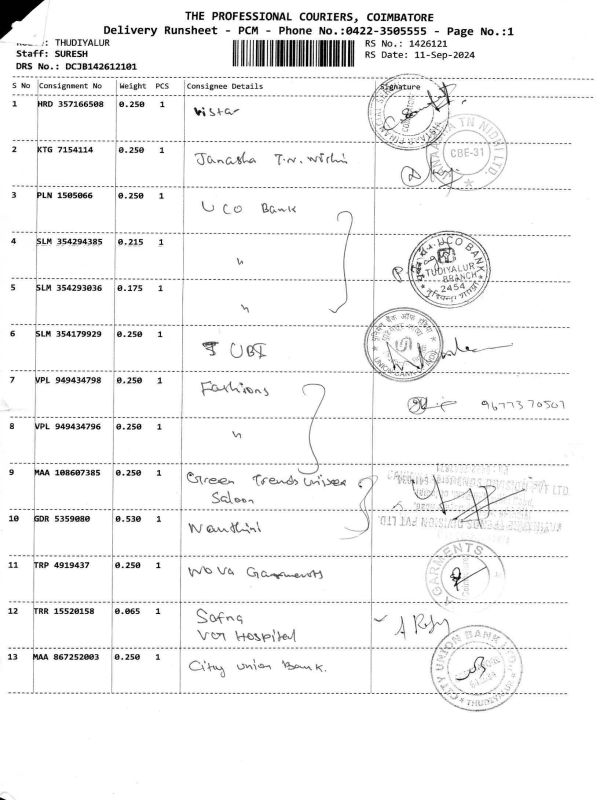 THE PROFESSIONAL COURIERS, COIMBATORE
Delivery Runsheet - PCM - Phone No.:0422-3505555 - Page No.:1
THUDIYALUR
RS No.: 1426121
Staff: SURESH
RS Date: 11-Sep-2024
DRS No.: DCJB142612101
S No Consignment No Weight PCS Consignee Details Signature
1 HRD 357166508 0.250 1 Vistar
2 KTG 7154114 0.250 1 Janasha T.N. Nidhi
CBE-31
3 PLN 1505066 0.250 1 UCO Bank
4 SLM 354294385 0.215 1 "
UCO BANK
TUDIYALUR
BRANCH
2454
5 SLM 354293036 0.175 1 "
6 SLM 354179929 0.250 1 UBI
7 VPL 949434798 0.250 1 Fashions
9677370507
8 VPL 949434796 0.250 1 "
9 MAA 108607385 0.250 1 Green Trends Unisex
Saloon
10 GDR 5359080 0.530 1 Nanthini
11 TRP 4919437 0.250 1 Nova Garments
GARMENTS
12 TRR 15520158 0.065 1
VCR Hospital
13 MAA 867252003 0.250 1 City Union Bank.
CITY UNION BANK LTD.,
THUDIYALUR